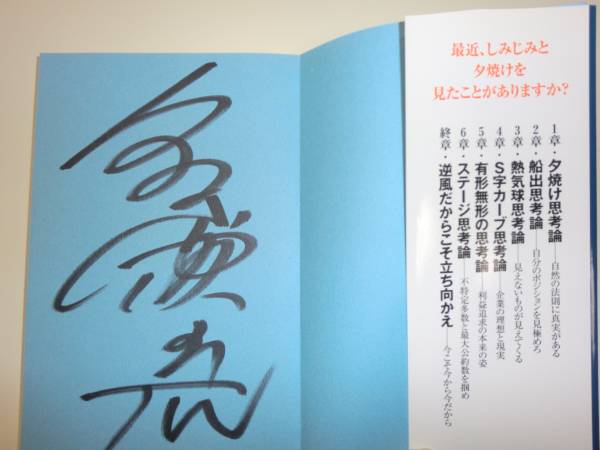 最近、しみじみと
夕焼けを
見たことがありますか?
1章・夕焼け思考論──自然の法則に真実がある
2章・船出思考論──自分のポジションを見極めろ
3章・熱気球思考論──見えないものが見えてくる
4章・S字カーブ思考論──企業の理想と現実
5章・有形無形の思考論──利益追求の本来の姿
6章・ステージ思考論──不特定多数と最大公約数を掴め
終章・逆風だからこそ立ち向かえ──今こそ今から今だから